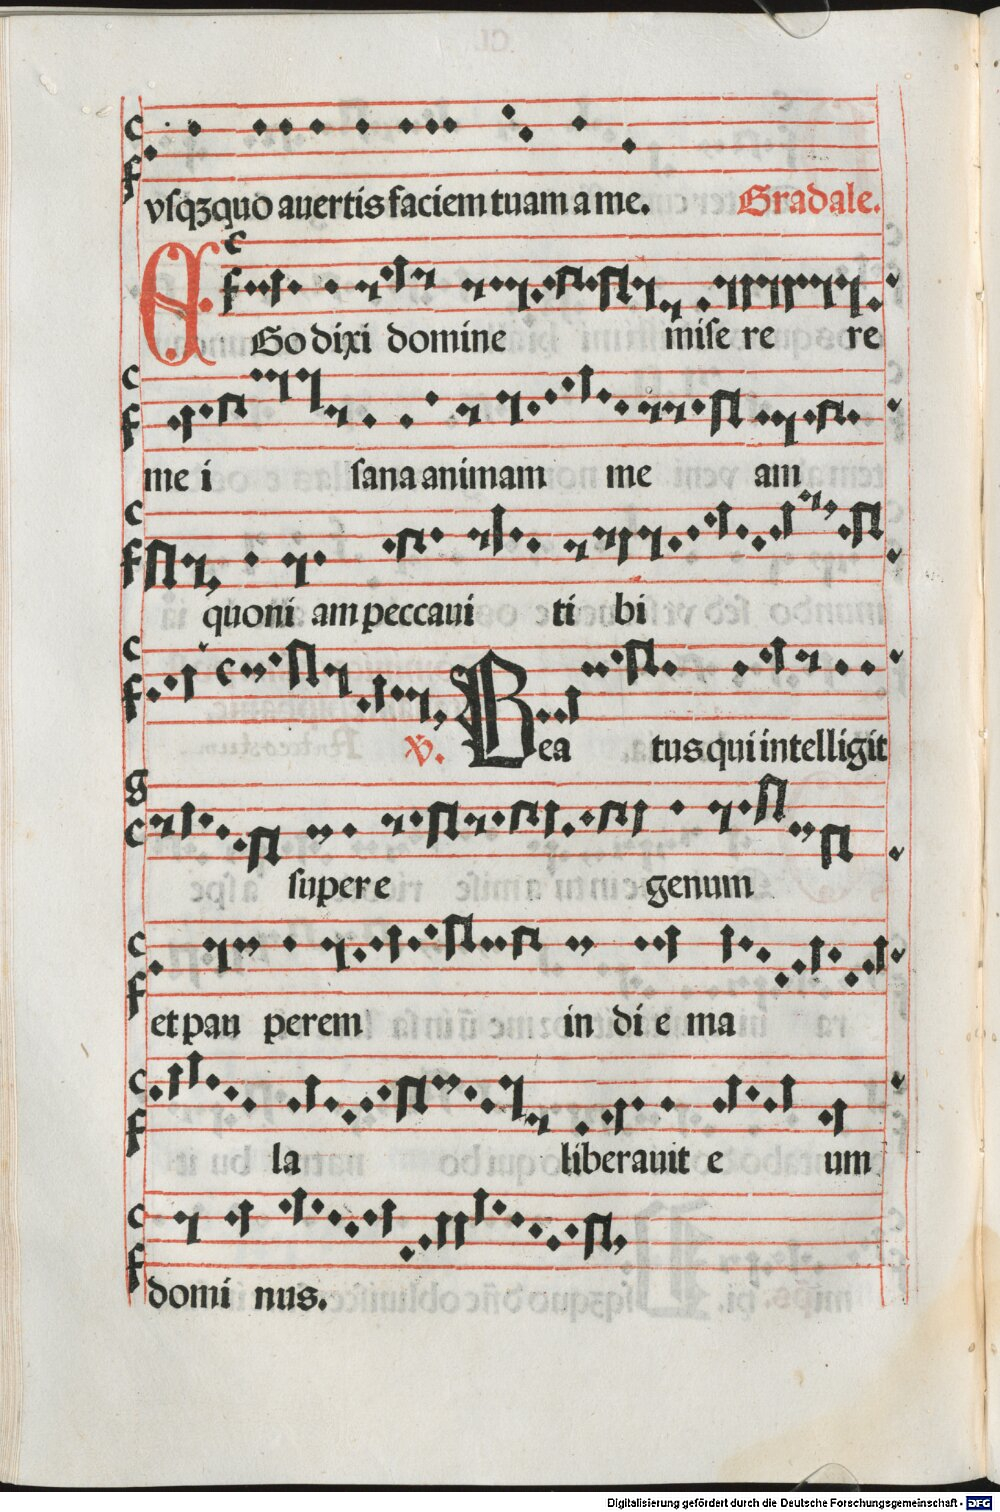 vsqꝫquo auertis faciem tuam a me. Gradale.
EGo dixi domine mise re re
me i sana animam me am
quoni am peccaui ti bi
℣. Bea tus qui intelligit
super e genum
et pau perem in di e ma
la liberauit e um
domi nus.
Digitalisierung gefördert durch die Deutsche Forschungsgemeinschaft - DFG